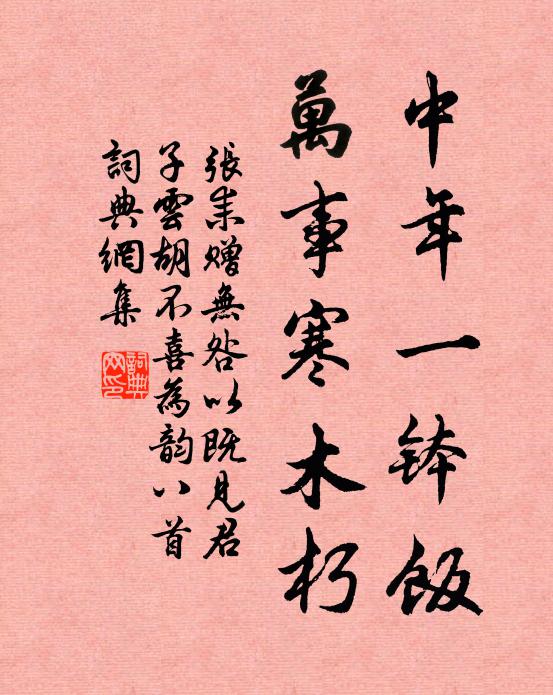 中年一缽飯
萬事寒木朽
張耒贈無咎以既見君
子雲胡不喜為韵八首
詞典網集
詞典
网印